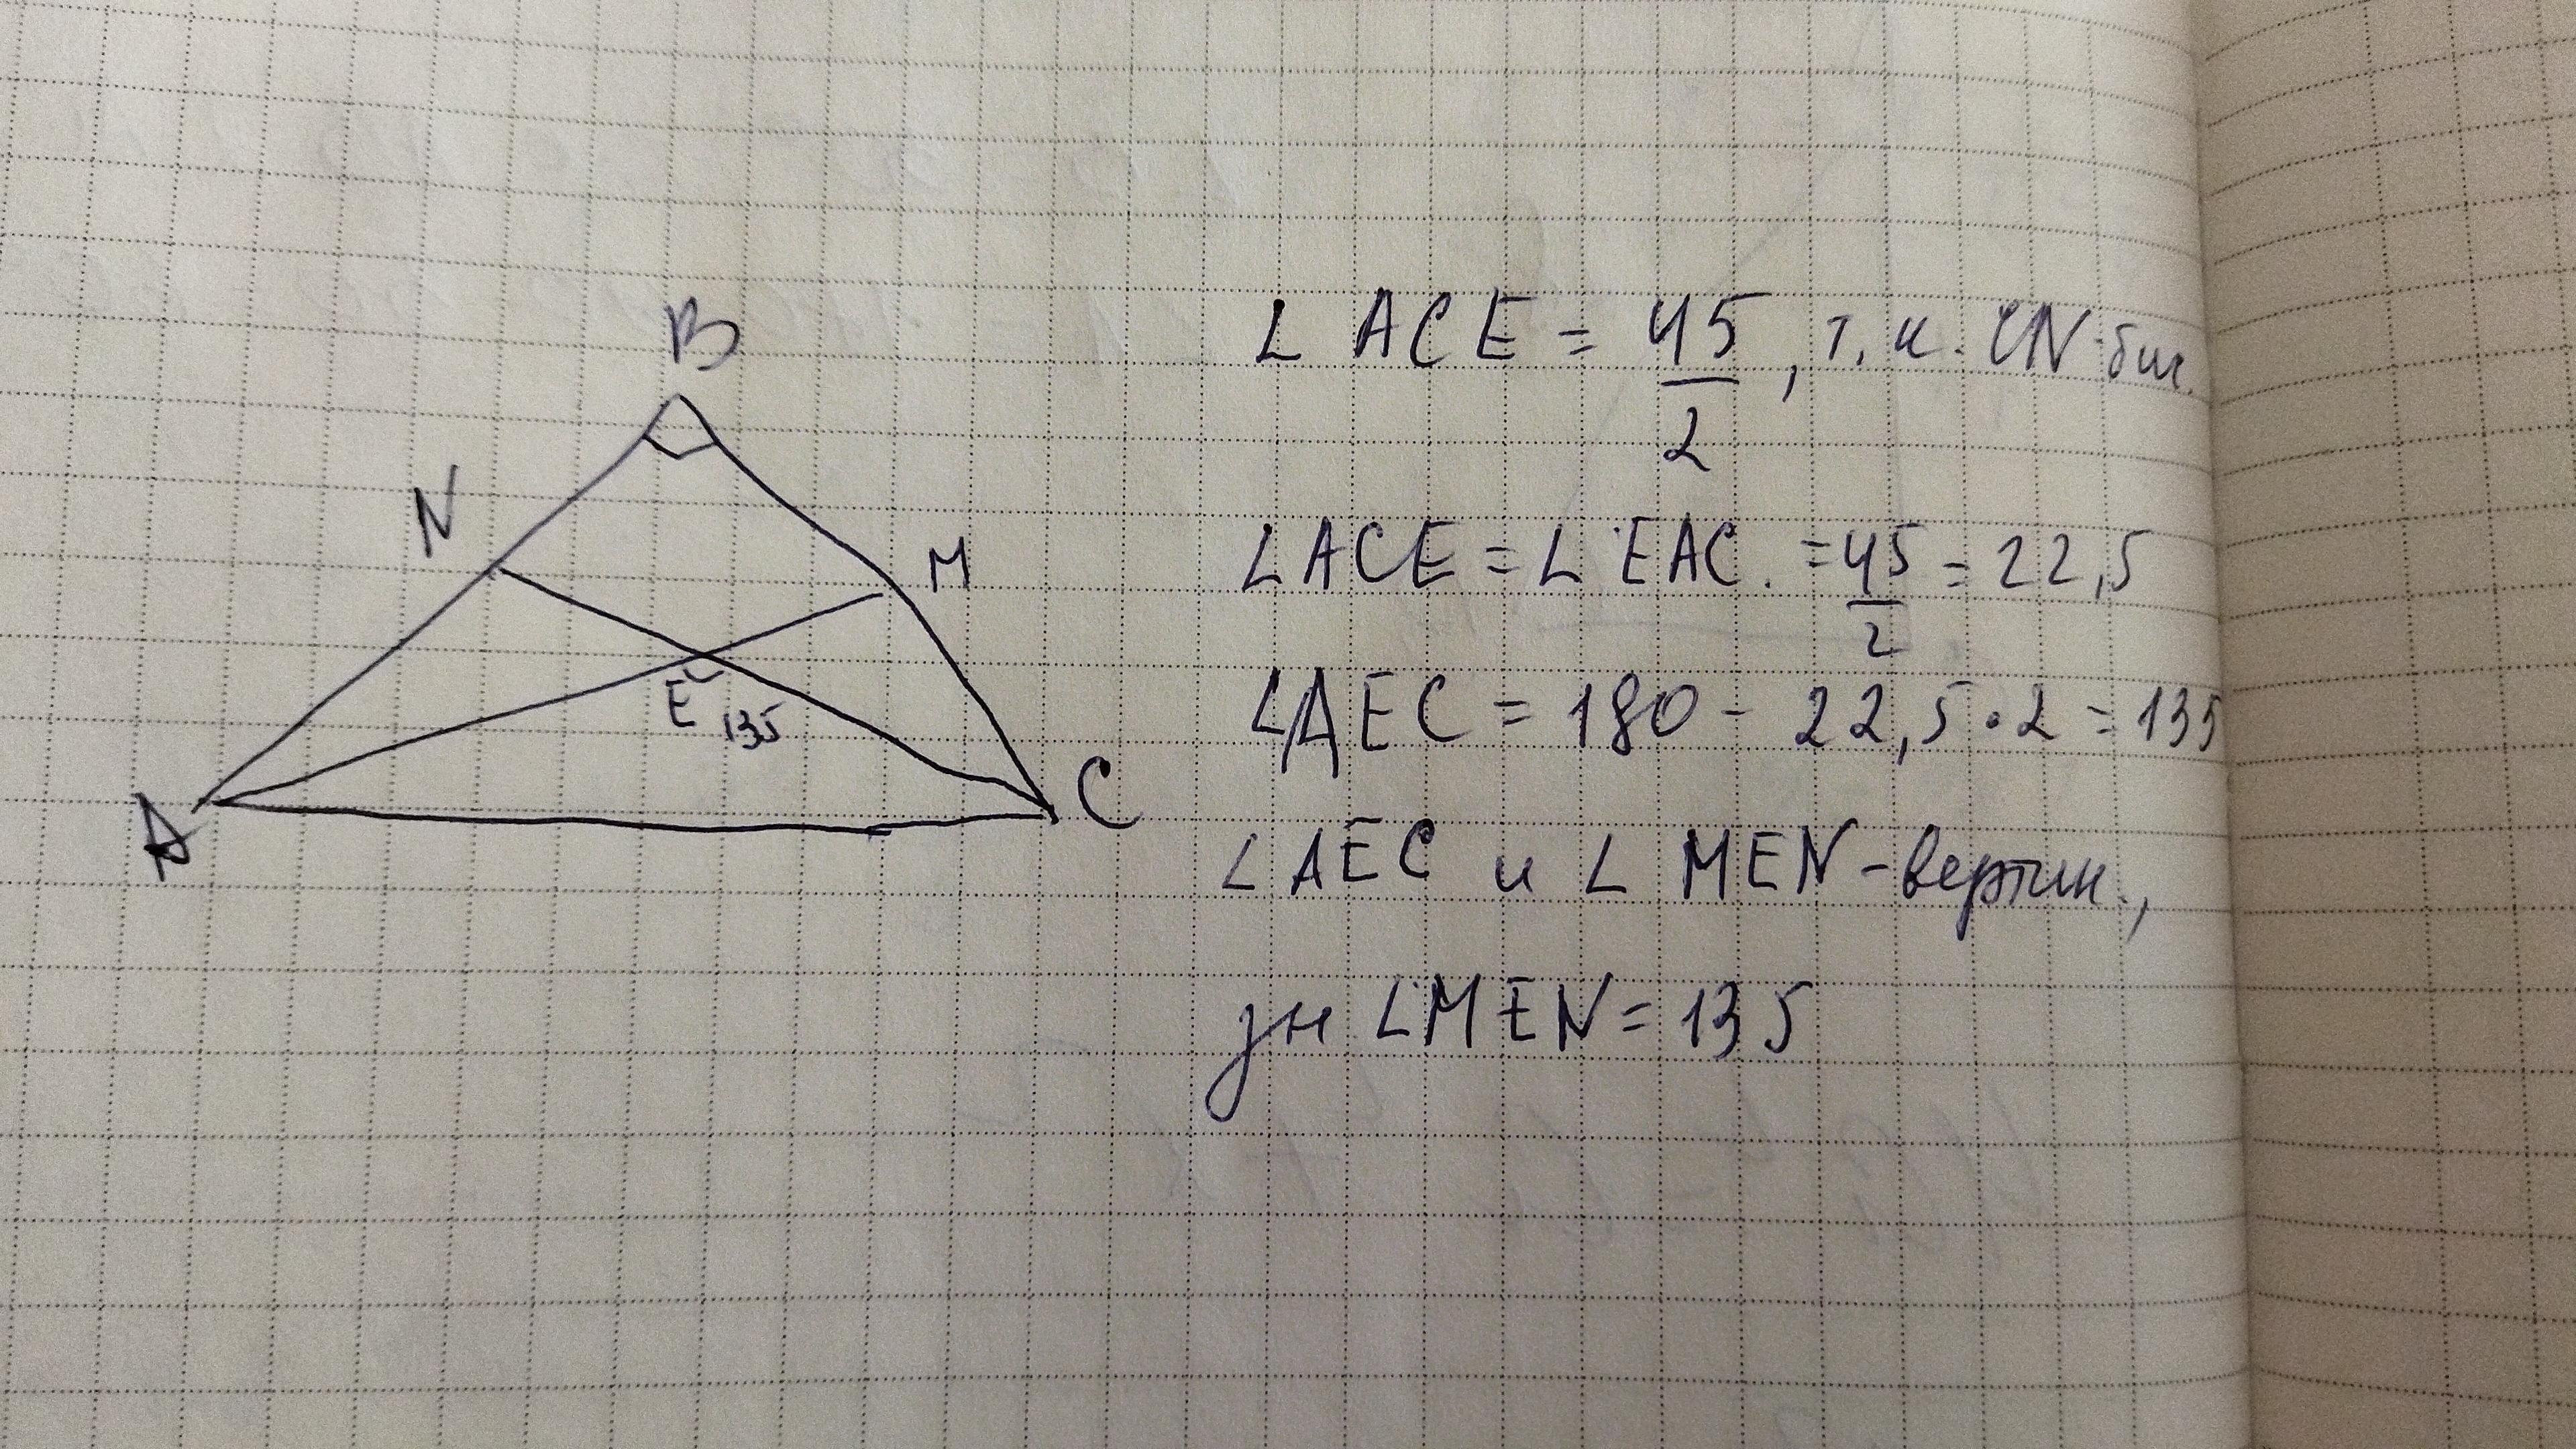 B
N
M
E
135
A
C
∠ ACE = 45/2, т.к. CN-бис.
∠ACE = ∠ EAC. = 45/2 = 22,5
∠AEC = 180 - 22,5 • 2 = 135
∠ AEC и ∠ MEN - вертик.,
зн ∠MEN = 135